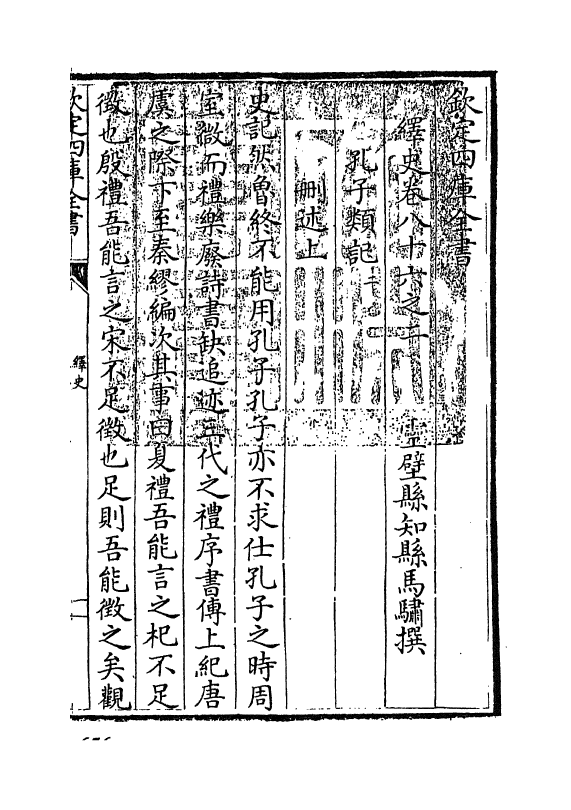 欽定四庫全書
繹史卷八十六之二　靈壁縣知縣馬驌撰
孔子類記
刪述上
史記然魯終不能用孔子孔子亦不求仕孔子之時周
室微而禮樂廢詩書缺追迹三代之禮序書傳上紀唐
虞之際下至秦繆編次其事曰夏禮吾能言之杞不足
徵也殷禮吾能言之宋不足徵也足則吾能徵之矣觀
欽定四庫全書
繹史